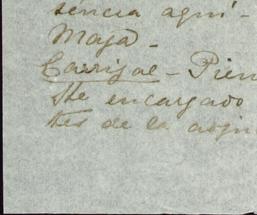 sencia aquí -
Maja -
Carijal - Pien
She encargado
tes de la